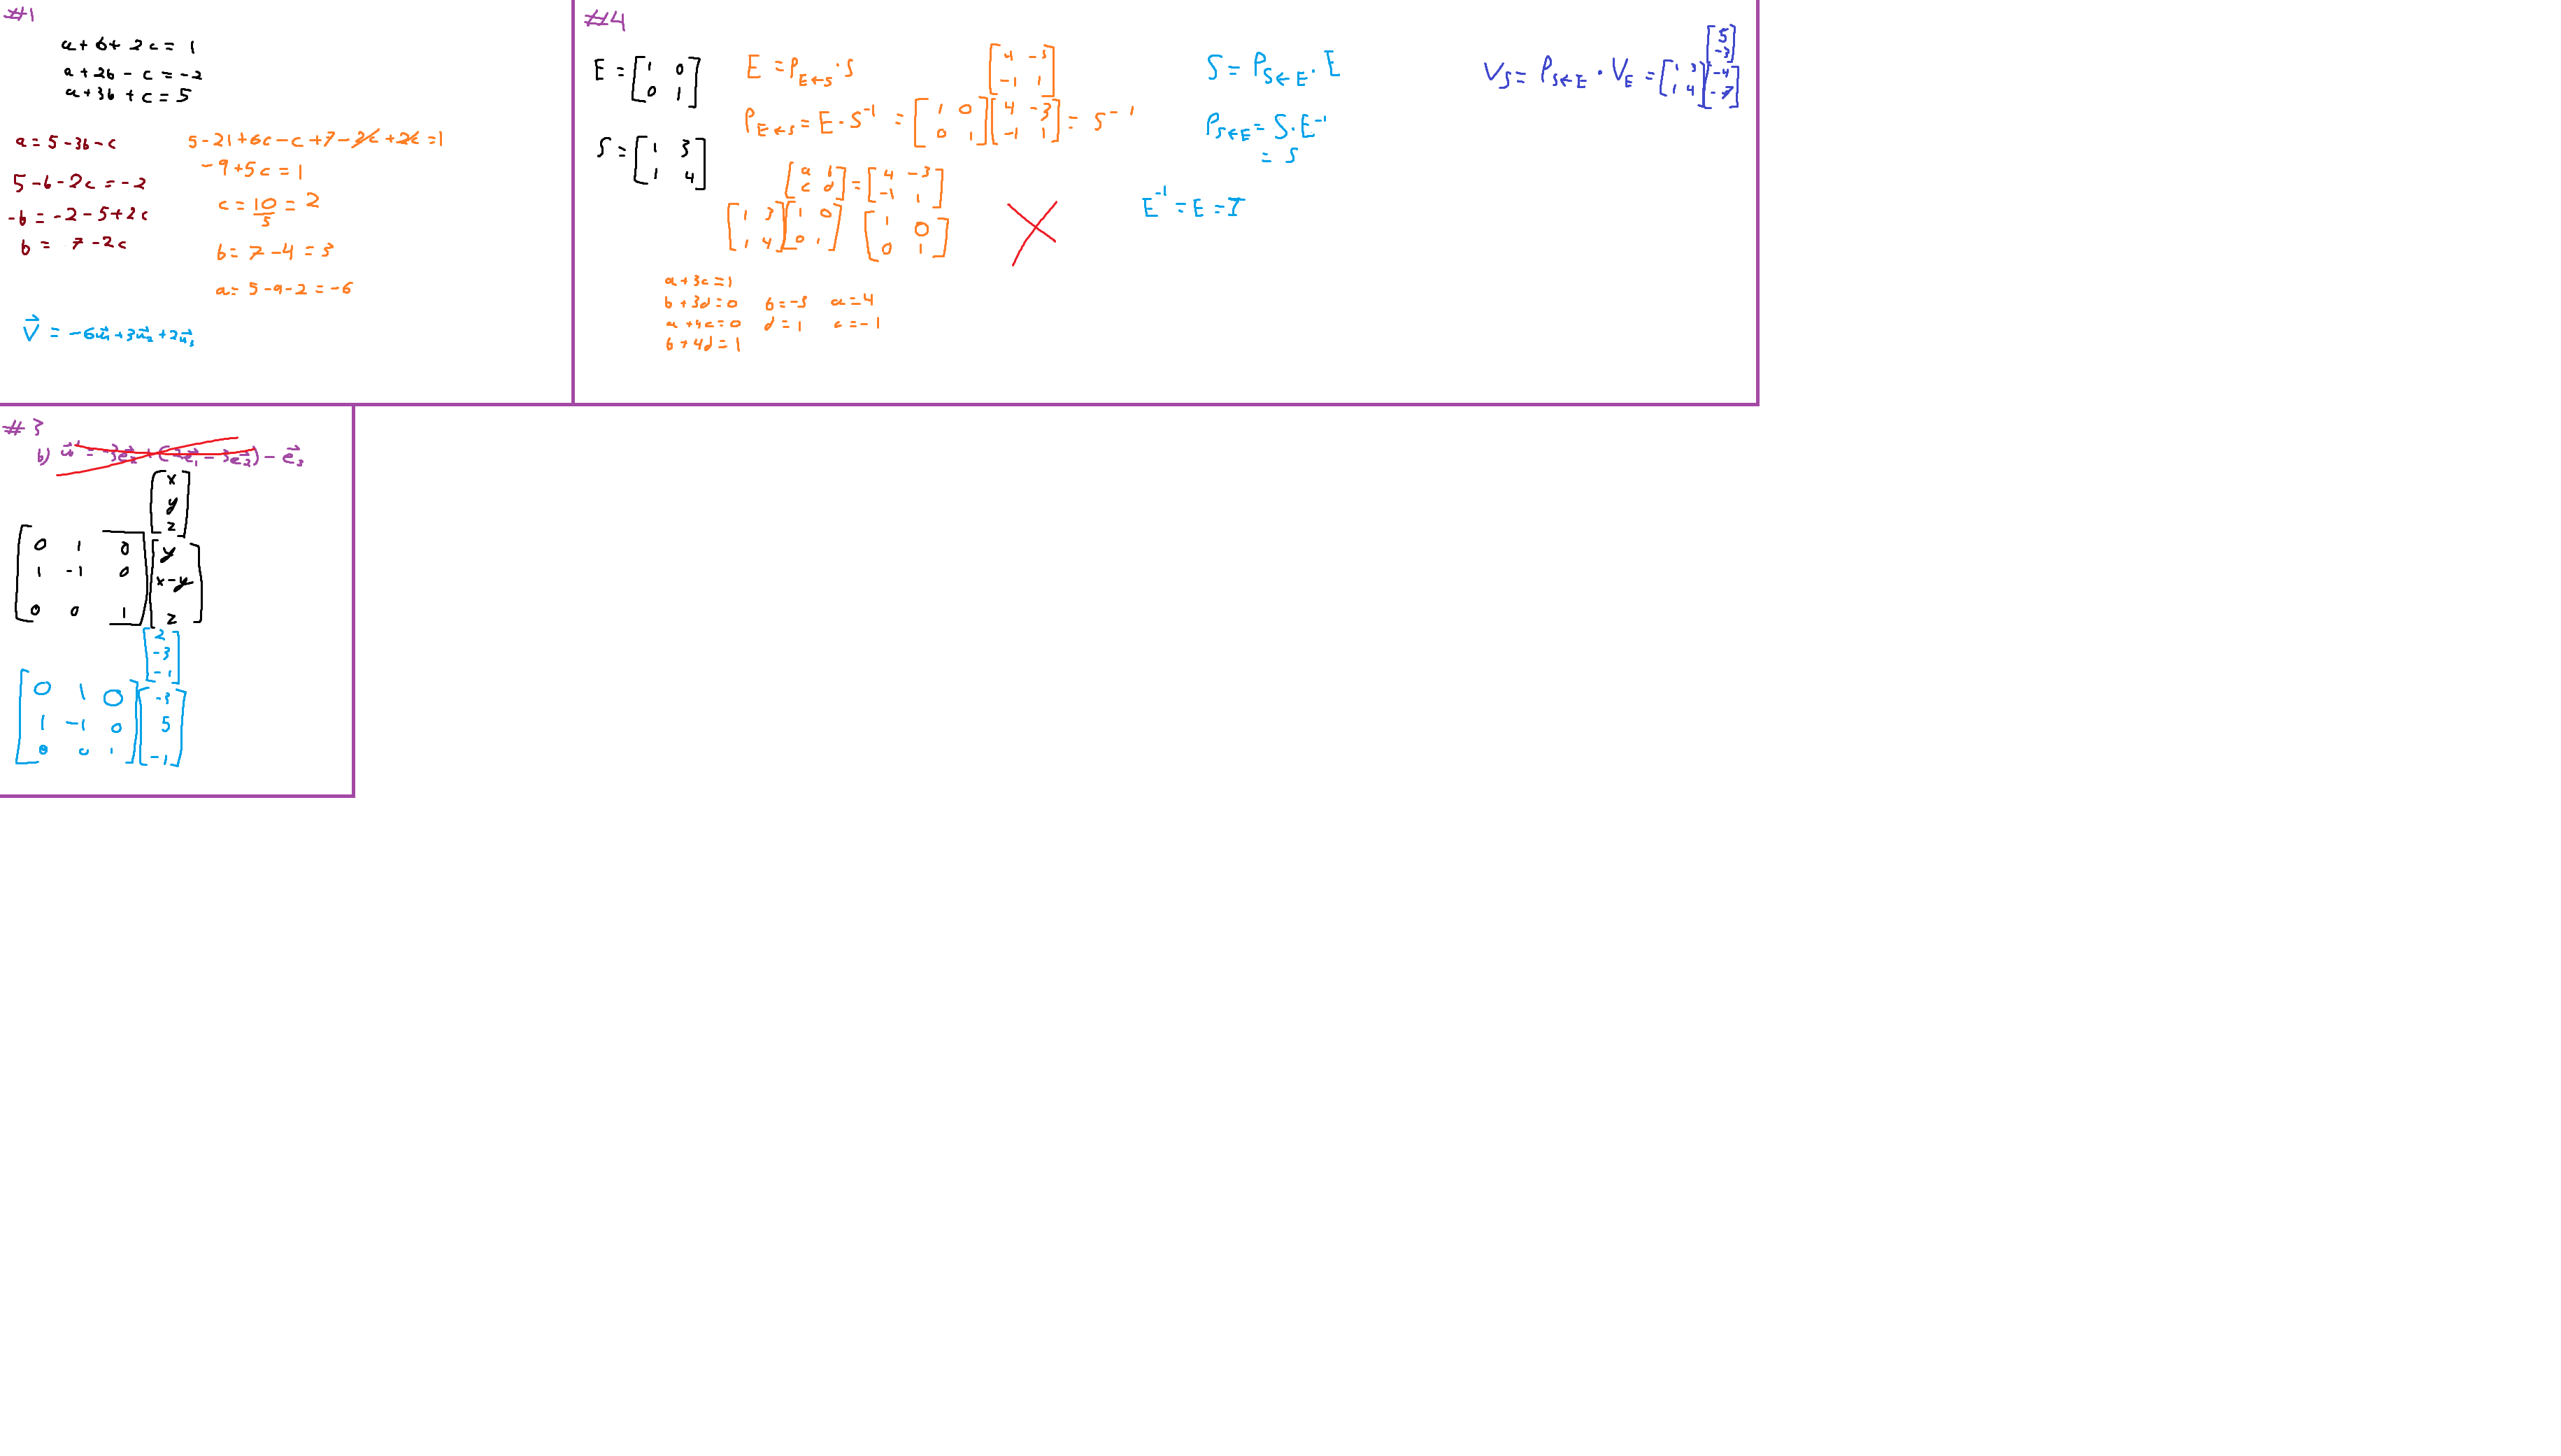 #1
a + b + 2c = 1
a + 2b - c = -2
a + 3b + c = 5
a = 5 - 3b - c
5 - b - 2c = -2
-b = -2 - 5 + 2c
b = 7 - 2c
5 - 21 + 6c - c + 7 - 2c + 2c = 1
-9 + 5c = 1
c = 10/5 = 2
b = 7 - 4 = 3
a = 5 - 9 - 2 = -6
V⃗ = -6u⃗₁ + 3u⃗₂ + 2u⃗₃
#4
E = [1 0
0 1]
S = [1 3
1 4]
E = P_{E←S} · S
[4 -3
-1 1]
P_{E←S} = E · S⁻¹ = [1 0 [4 -3 = S⁻¹
0 1] -1 1]
[a b = [4 -3
c d] -1 1]
[1 3 [1 0 [1 0
1 4] 0 1] 0 1]
a + 3c = 1
b + 3d = 0 b = -3 a = 4
a + 4c = 0 d = 1 c = -1
b + 4d = 1
S = P_{S←E} · E
P_{S←E} = S · E⁻¹
= S
E⁻¹ = E = I
[5
-3]
V_S = P_{S←E} · V_E = [1 3 [-4
1 4] -7]
#3
b) u⃗ = -3e⃗₂ + (2e⃗₁ - 3e⃗₂) - e⃗₃
[x
y
z]
[0 1 0 [y
1 -1 0 x-y
0 0 1] z]
[2
-3
-1]
[0 1 0 [-3
1 -1 0 5
0 0 1] -1]